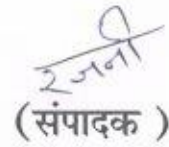 रजनी
(संपादक )